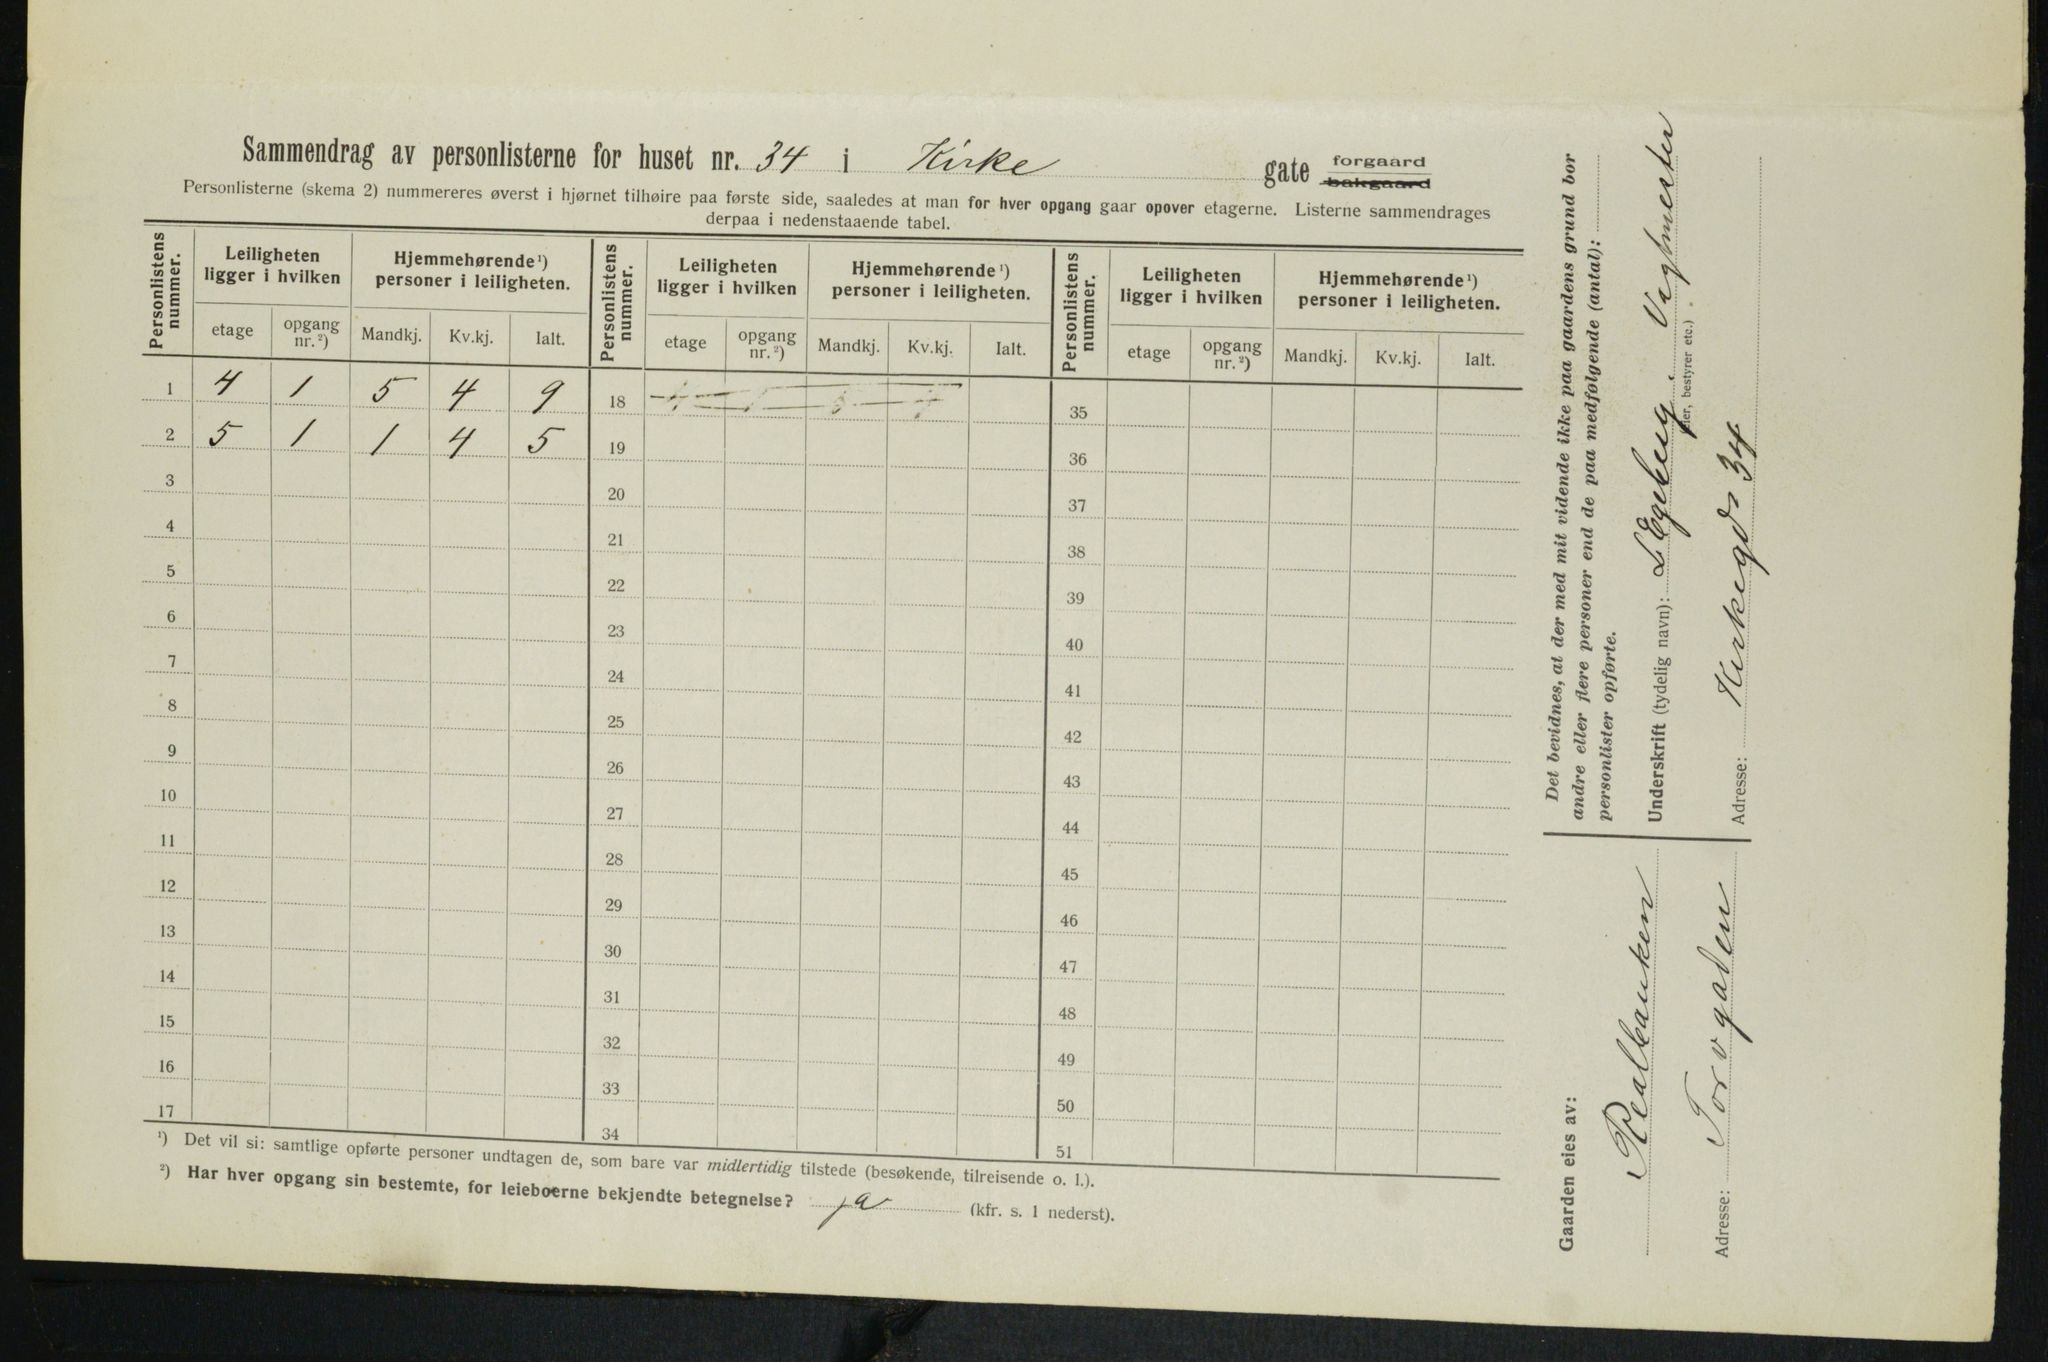 Sammendrag av personlisterne for huset nr. 34 i Kirke gate forgaard
bakgaard
Personlisterne (skema 2) nummereres øverst i hjørnet tilhøire paa første side, saaledes at man for hver opgang gaar opover etagerne. Listerne sammendrages
derpaa i nedenstaaende tabel.
Personlistens nummer. Leiligheten ligger i hvilken Hjemmehørende ¹) personer i leiligheten. Personlistens nummer. Leiligheten ligger i hvilken Hjemmehørende ¹) personer i leiligheten. Personlistens nummer. Leiligheten ligger i hvilken Hjemmehørende ¹) personer i leiligheten.
etage opgang nr. ²) Mandkj. Kv.kj. Ialt. etage opgang nr. ²) Mandkj. Kv.kj. Ialt. etage opgang nr. ²) Mandkj. Kv.kj. Ialt.
1 4 1 5 4 9 18 35
2 5 1 1 4 5 19 36
3 20 37
4 21 38
5 22 39
6 23 40
7 24 41
8 25 42
9 26 43
10 27 44
11 28 45
12 29 46
13 30 47
14 31 48
15 32 49
16 33 50
17 34 51
¹) Det vil si: samtlige opførte personer undtagen de, som bare var midlertidig tilstede (besøkende, tilreisende o. l.).
²) Har hver opgang sin bestemte, for leieboerne bekjendte betegnelse? ja (kfr. s. 1 nederst).
Det bevidnes, at der med mit vidende ikke paa gaardens grund bor
andre eller flere personer end de paa medfølgende (antal):
personlister opførte.
Underskrift (tydelig navn): L Egeberg, Vagtmester
er, bestyrer etc.)
Adresse: Kirkegd 34
Gaarden eies av:
Realbanken
Adresse: Torvgaden